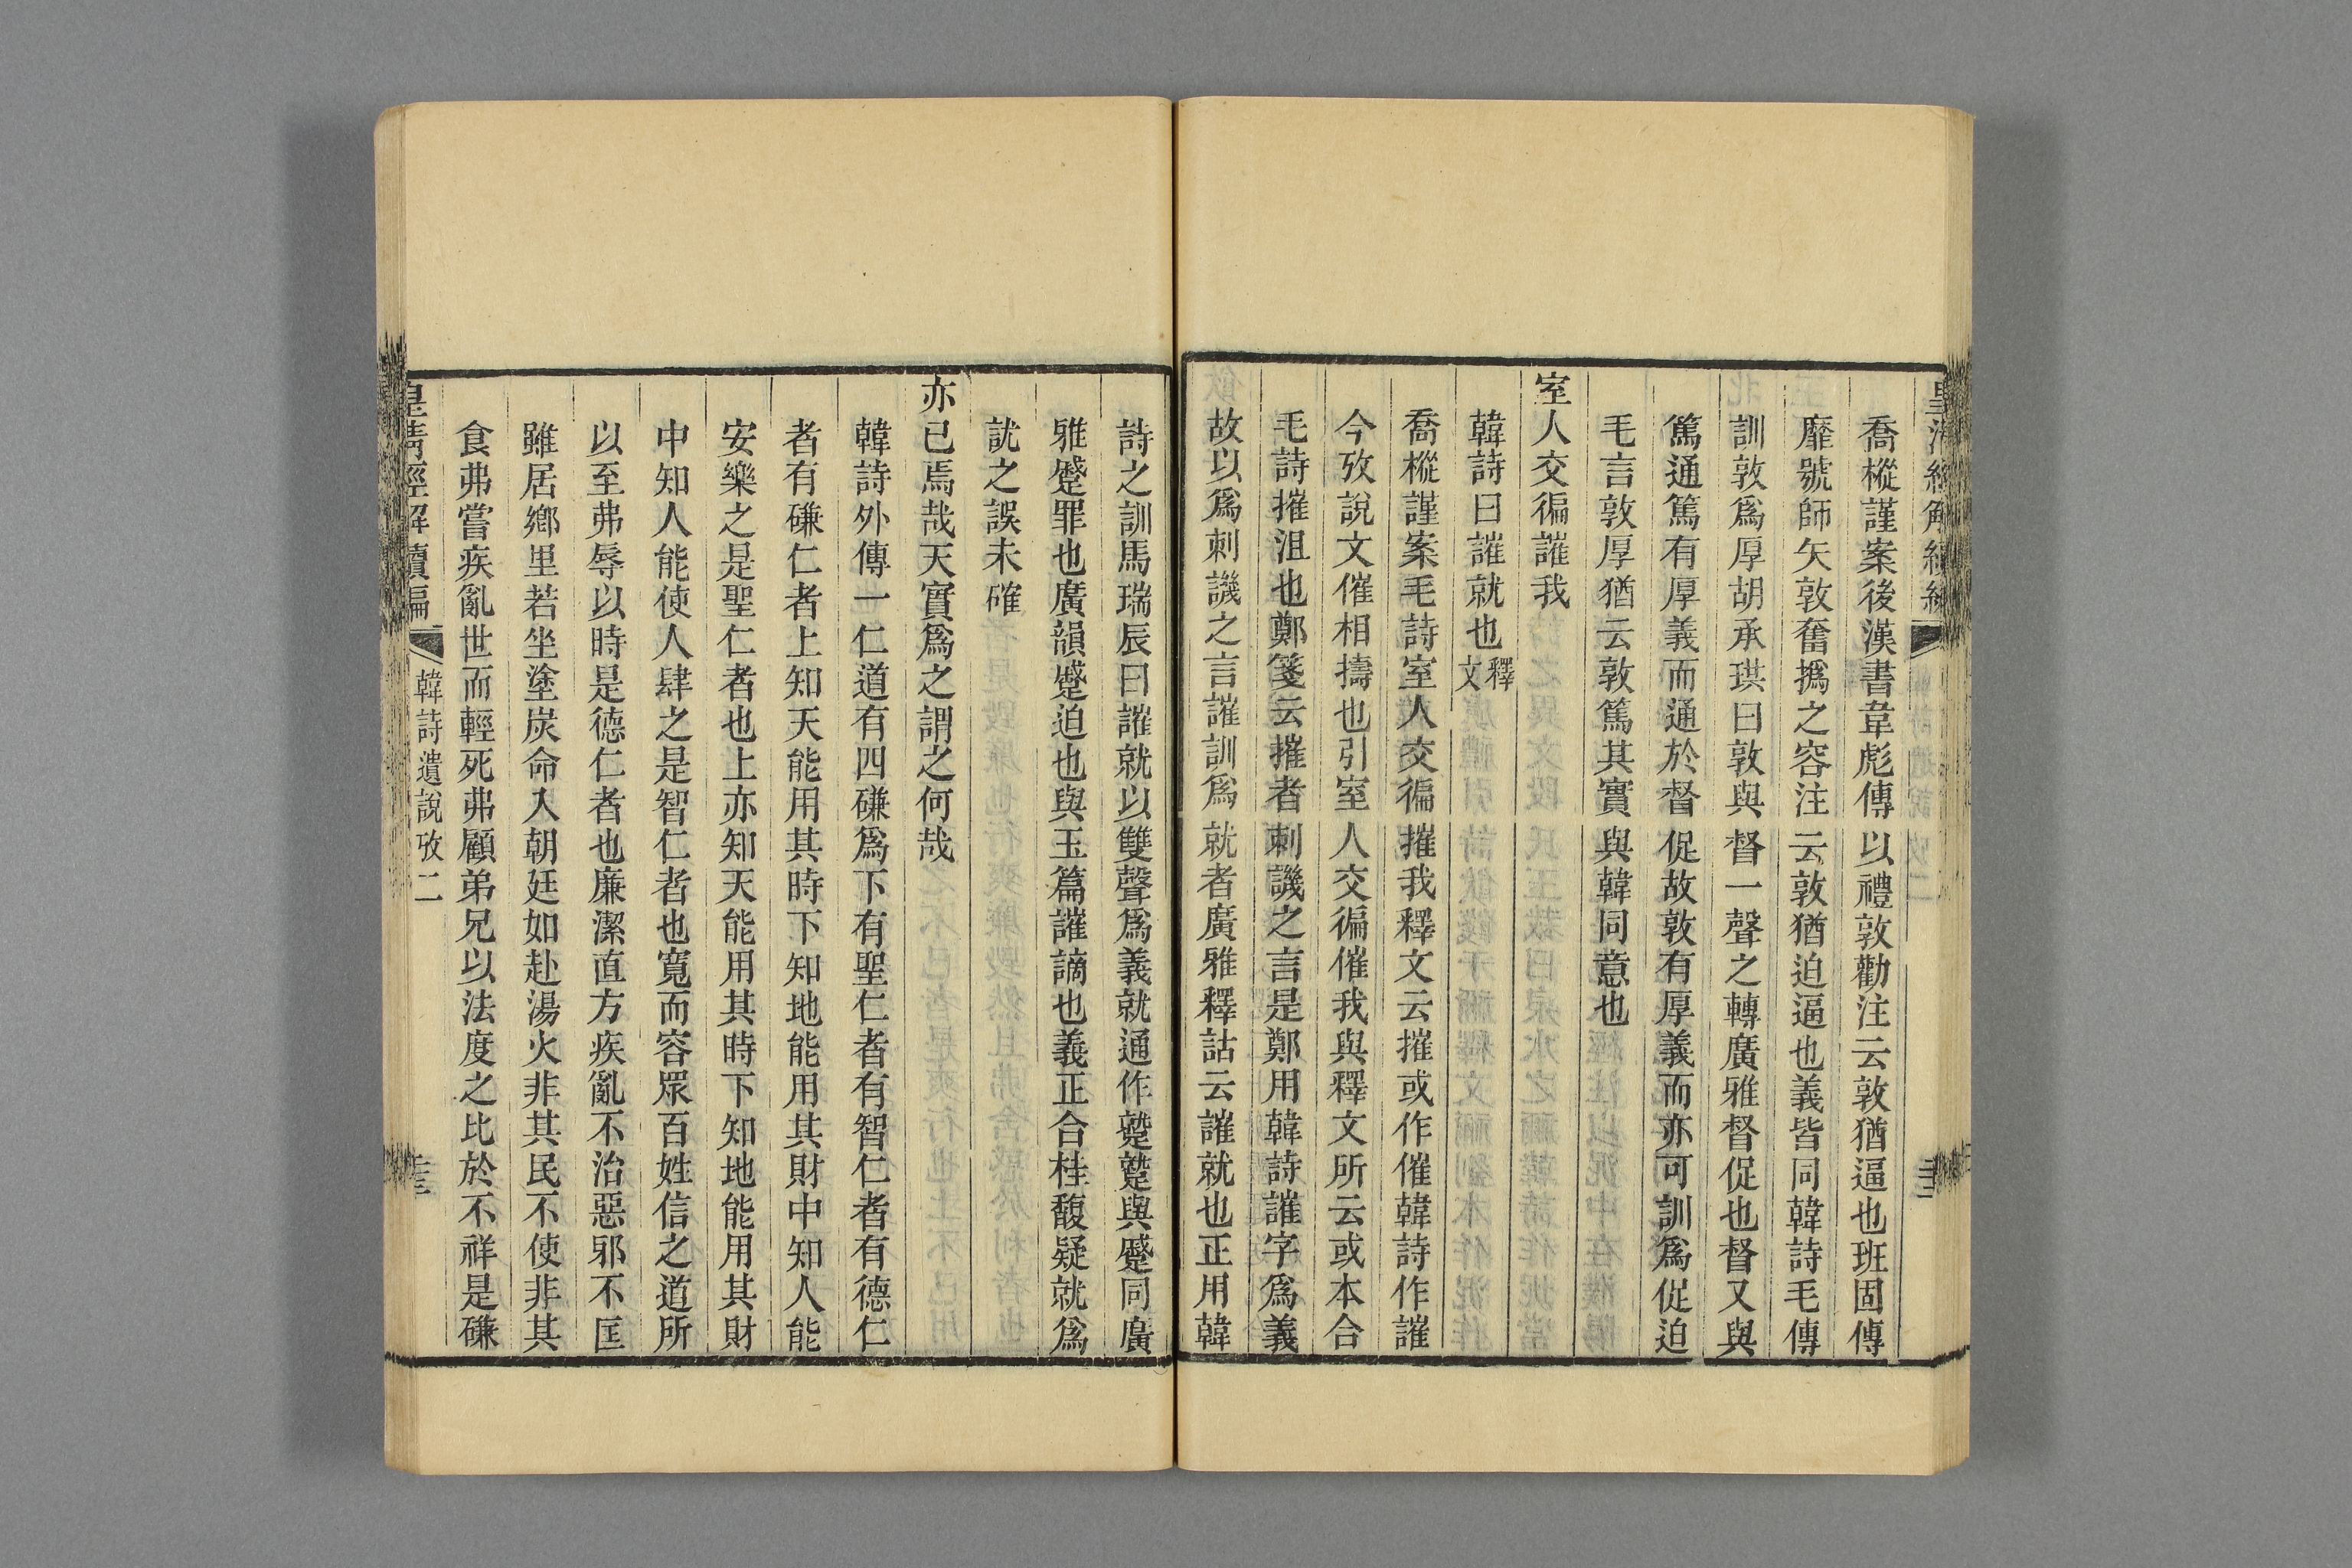 喬樅謹案後漢書韋彪傳以禮敦勸注云敦猶逼也班固傳
靡號師矢敦奮撝之容注云敦猶迫逼也義皆同韓詩毛傳
訓敦爲厚胡承珙曰敦與督一聲之轉廣雅督促也督又與
篤通篤有厚義而通於督促故敦有厚義而亦可訓爲促迫
毛言敦厚猶云敦篤其實與韓同意也
室人交徧讙我
韓詩曰讙就也釋文
喬樅謹案毛詩室人交徧摧我釋文云摧或作催韓詩作讙
今攷說文催相擣也引室人交徧催我與釋文所云或本合
毛詩摧沮也鄭箋云摧者刺譏之言是鄭用韓詩讙字爲義
故以爲刺譏之言讙訓爲就者廣雅釋詁云讙就也正用韓
詩之訓馬瑞辰曰讙就以雙聲爲義就通作蹵蹵與蹙同廣
雅蹙罪也廣韻蹙迫也與玉篇讙謫也義正合桂馥疑就爲
訧之誤未確
亦已焉哉天實爲之謂之何哉
韓詩外傳一仁道有四磏爲下有聖仁者有智仁者有德仁
者有磏仁者上知天能用其時下知地能用其財中知人能
安樂之是聖仁者也上亦知天能用其時下知地能用其財
中知人能使人肆之是智仁者也寬而容眾百姓信之道所
以至弗辱以時是德仁者也廉潔直方疾亂不治惡邪不匡
雖居鄉里若坐塗炭命入朝廷如赴湯火非其民不使非其
食弗嘗疾亂世而輕死弗顧弟兄以法度之比於不祥是磏
皇淸經解續編 韓詩遺說攷二